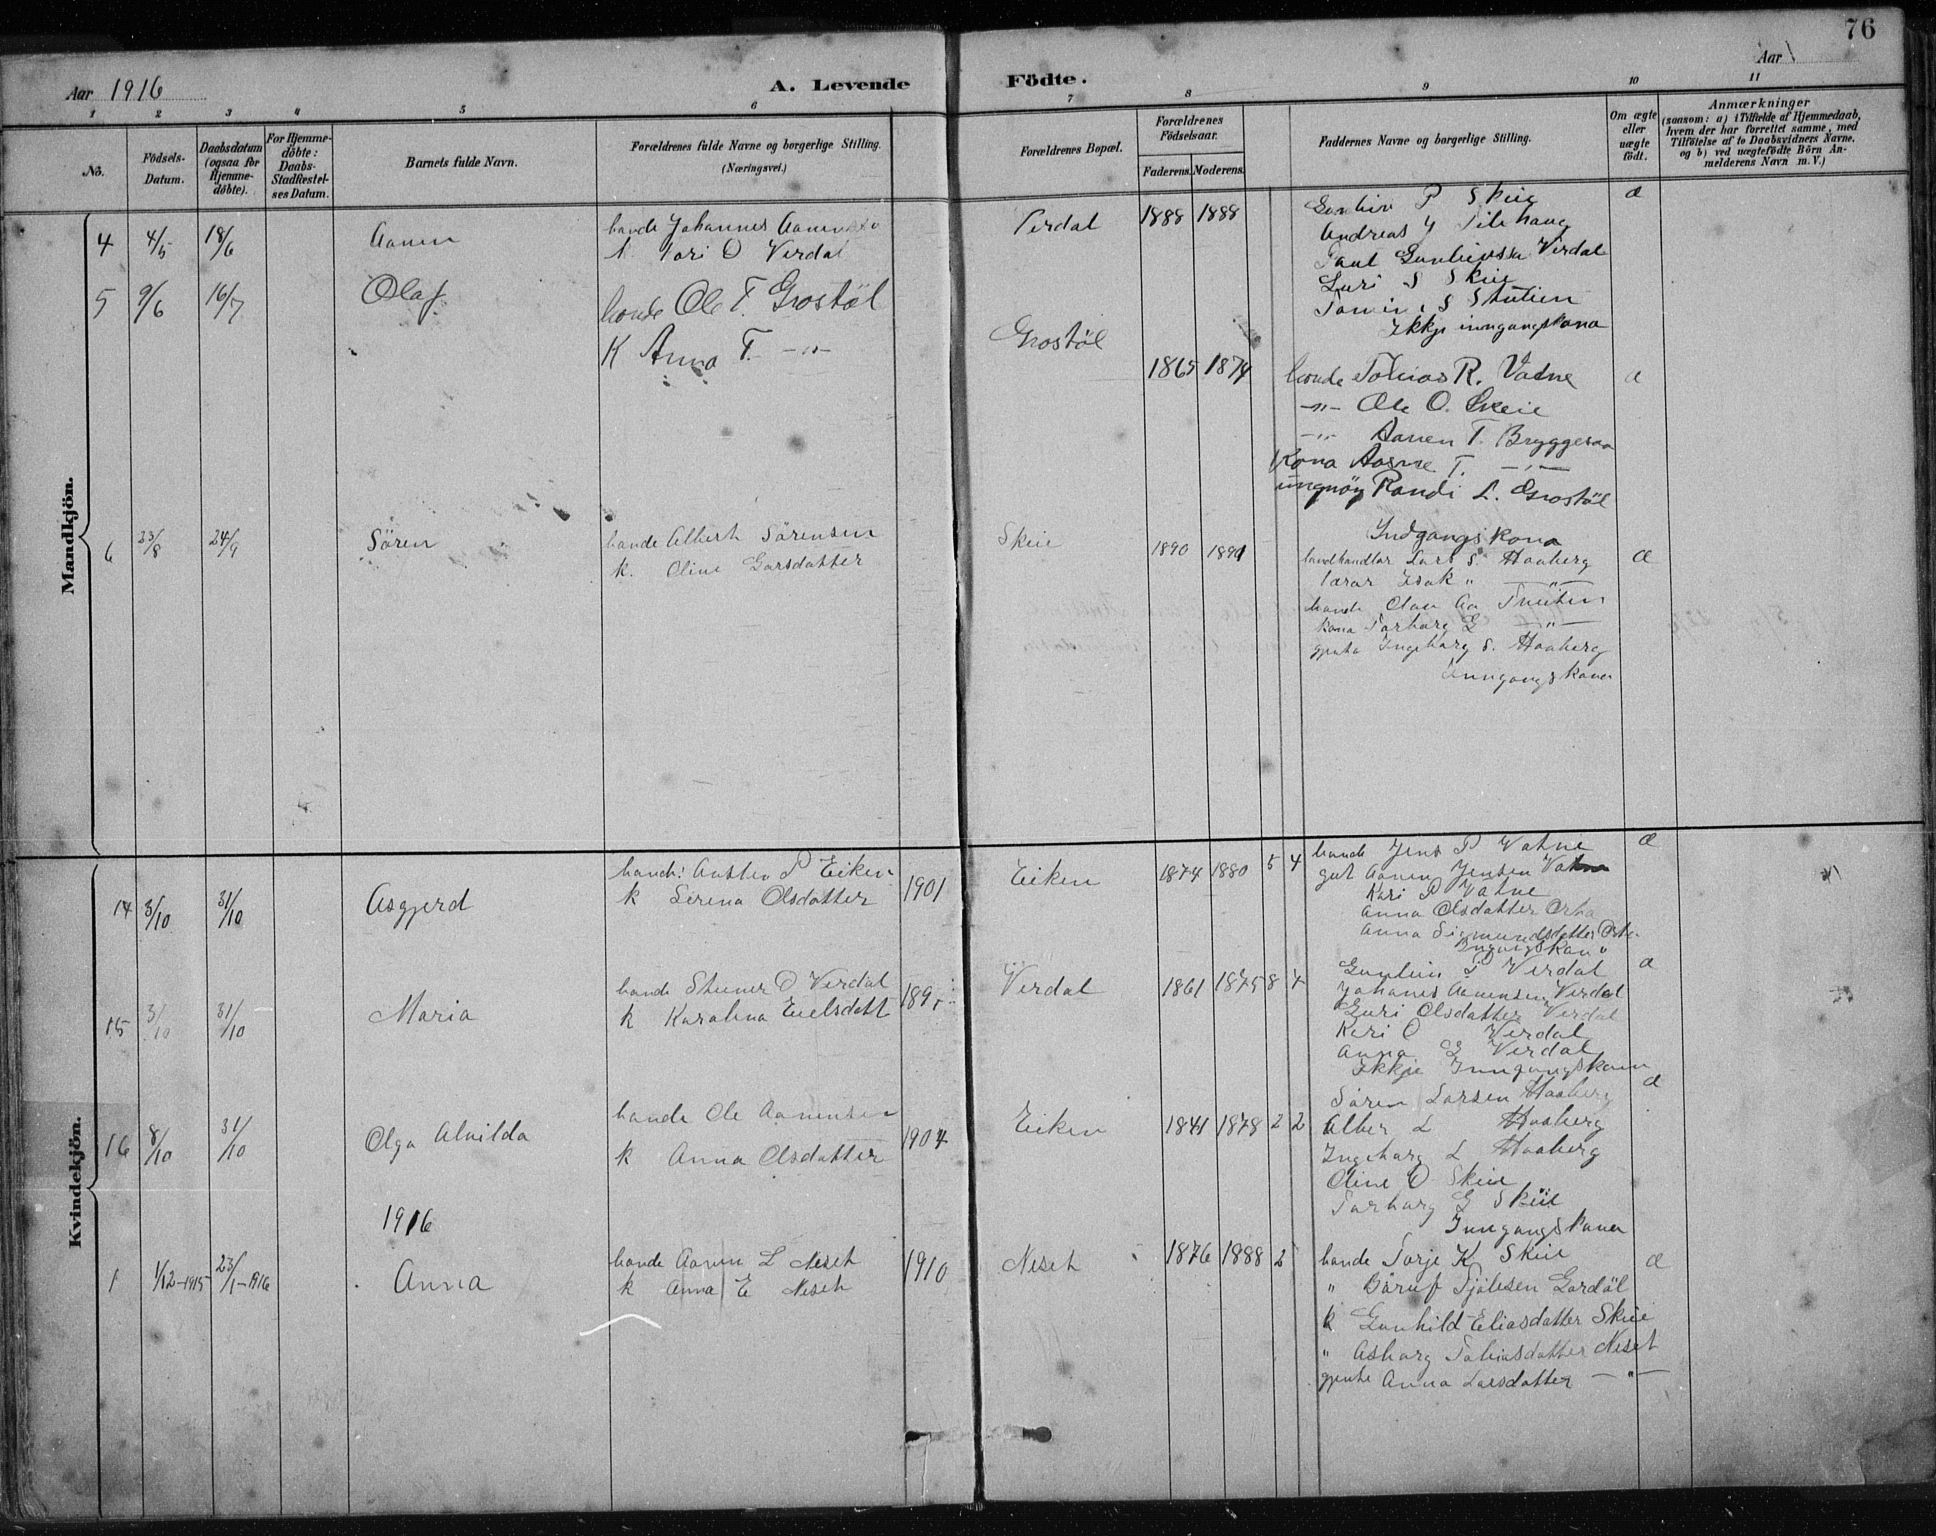 76
Aar 1916
A. Levende Födte.
Aar 1
1 2 3 4 5 6 7 8 9 10 11
No.
Födsels-Datum.
Daabsdatum (ogsaa for Hjemme-döbte).
For Hjemme-döbte: Daabs-Stadfæstel-ses Datum.
Barnets fulde Navn.
Forældrenes fulde Navne og borgerlige Stilling. (Næringsvei.)
Forældrenes Bopæl.
Forældrenes Födselsaar.
Faderens. Moderens.
Faddernes Navne og borgerlige Stilling.
Om ægte eller uægte födt.
Anmærkninger (saasom: a) i Tilfælde af Hjemmedaab, hvem der har forrettet samme, med Tilföielse af to Daabsvidners Navne, og b) ved uægtefödte Börn An-melderens Navn m. V.)
Mandkjön.
4 4/5 18/6 Aanen bonde Johannes Verdal 1888 1888 P Skeie æ
O Verdal Andreas
Verdal
Guri S Skeie
5 9/6 16/7 Olaf bonde Ole T. Grostöl
K Anna T. -"- Grostöl Ikkje inngangskona
1865 1874 bonde Tobias R. Vatne æ
-"- Ole O. Skeie
-"- Aanen T. Bryggesaa
Kona Aasne T. -"-
ungmöy Randi L. Grostöl
Indgangskona
6 23/8 24/9 Sören bonde Albert Sörensen Skeie 1890 1891 landhandlar Lars S. Haaberg æ
k. Oline Garsdatter lærar Isak " -"-
bonde Olav Aa
kona Torborg G -"-
gjenta Ingeborg S. Haaberg
Inngangskona
Kvindekjön.
14 3/10 31/10 Asgjerd bonde: Austen P Eiken 1901 Eiken 1874 1880 5 4 bonde Jens P Vatne æ
k Serena Olsdatter gut Aanen Jensen Vatne
Kari P Vatne
Anna Olsdatter
Anna Sigmundsdatter
15 3/10 31/10 Maria bonde Steiner O Verdal Verdal 1861 1875 8 7 P Verdal æ
k Karolina Johanes Aanensen Verdal
Guri Olsdatter Verdal
Kari O Verdal
Anna G Verdal
Ikkje Inngangskona
16 8/10 31/10 Olga Alvilda bonde Ole Aanensen 1904 Eiken 1841 1878 2 2 Sören Larsen Haaberg æ
k Anna Olsdatter Alber L Haaberg
Ingeborg L Haaberg
Oline O Skeie
Torborg G Skeie
Inngangskona
1916
1 1/12-1915 23/1-1916 Anna bonde Aanen L Neset 1910 Neset 1876 1888 2 bonde Torje K Skeie æ
k Anna E Neset " Baruf
k Gunhild Eliasdatter Skeie
" Asborg Tobiasdatter Neset
gjente Anna Larsdatter -"-